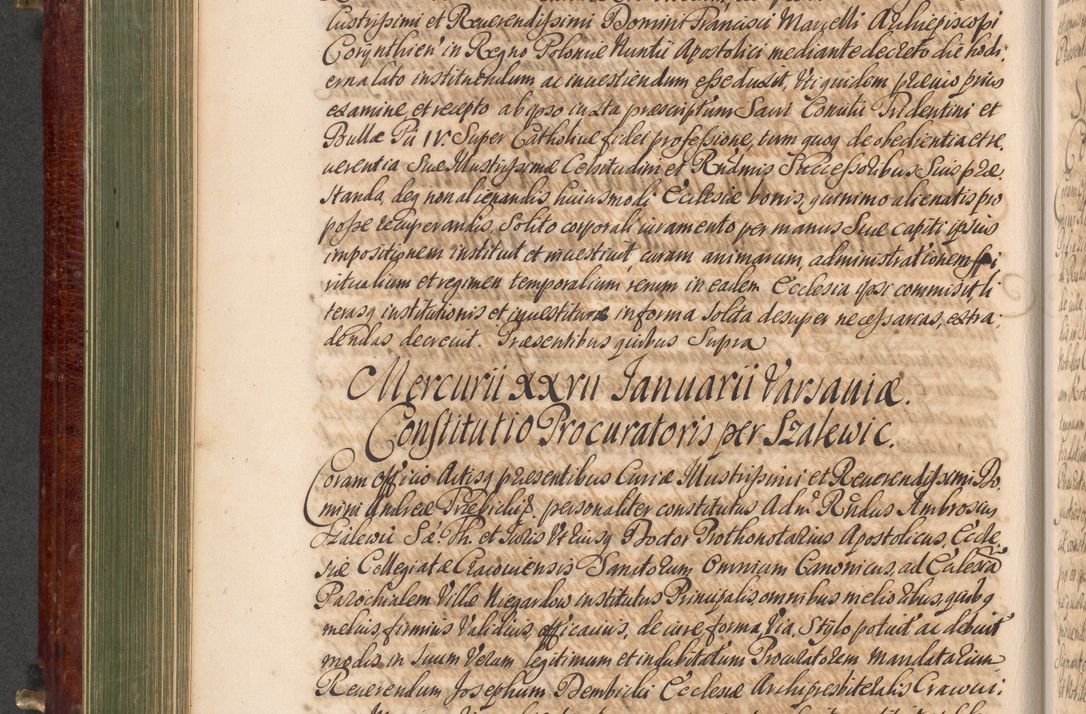 lustrissimi et Reverendissimi Domini Francisci Mancelli Archiepiscopi
Corynthien in Regno Poloniæ Nuntii Apostolici mediante decreto die hodi„
erna lato instituendum ac investiendum esse duxit, Uti quidem prævio prius
examine, et recepto ab ipso iuxta præscriptum Sacri Concilii Tridentini et
Bullæ Pii IV. Super Catholicæ fidei professione, tum quoq de obedientia et re„
verentia Suæ Illustrissimæ Celsitudini et Rndmis Successoribus Suis præ„
standa, deq non alienandis huiusmodi Ecclesiæ bonis, quinimo alienatis pro
posse recuperandis, Solito corporali iuramento per manus Suæ capiti ipsius
impositionem instituit et investivit, curam animarum, administrationem Spi
ritualium et regimen temporalium rerum in eadem Ecclesia ipsi commisit, li
terasq institutionis et investituræ in forma Solita desuper necessarias, extra„
dendas decrevit. Præsentibus quibus Supra
Mercurii XXVII Ianuarii Varsaviæ.
Constitutio Procuratoris per Szalewic.
Coram officio Actisq præsentibus Curiæ Illustrissimi et Reverendissimi Do„
mini Andreæ personaliter constitutus Adm Rndus Ambrosius
Szalewic Sæ Th. et Iuris Utriusq Doctor Prothonotarius Apostolicus, Eccle„
siæ Collegiatæ Cracoviensis Sanctorum Omnium Canonicus, ad Ecclesiam
Parochialem Villæ Niegardow institutus Principalis, omnibus melioribus, quibq
melius, firmius Validius, efficacius, de iure, forma Via, Stylo potuit ac debuit
modis, in Suum Verum legitimum et indubitatum Procuratorem mandatarium
Reverendum Josephum Dembicki Ecclesiæ Archipresbiteralis Cracovi„